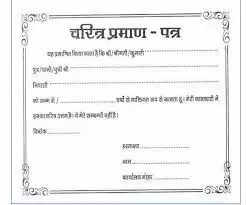 चरित्र प्रमाण - पत्र
यह प्रमाणित किया जाता है कि श्री/श्रीमती/कुमारी
पुत्र/पत्नी/पुत्री श्री
निवासी
को जन्म से / वर्षों से व्यक्तिगत रूप से जानता हूं। मेरी जानकारी में
इनका चरित्र उत्तम है। ये मेरे सम्बन्धी नहीं हैं।
दिनांक
हस्ताक्षर
नाम
कार्यालय मोहर